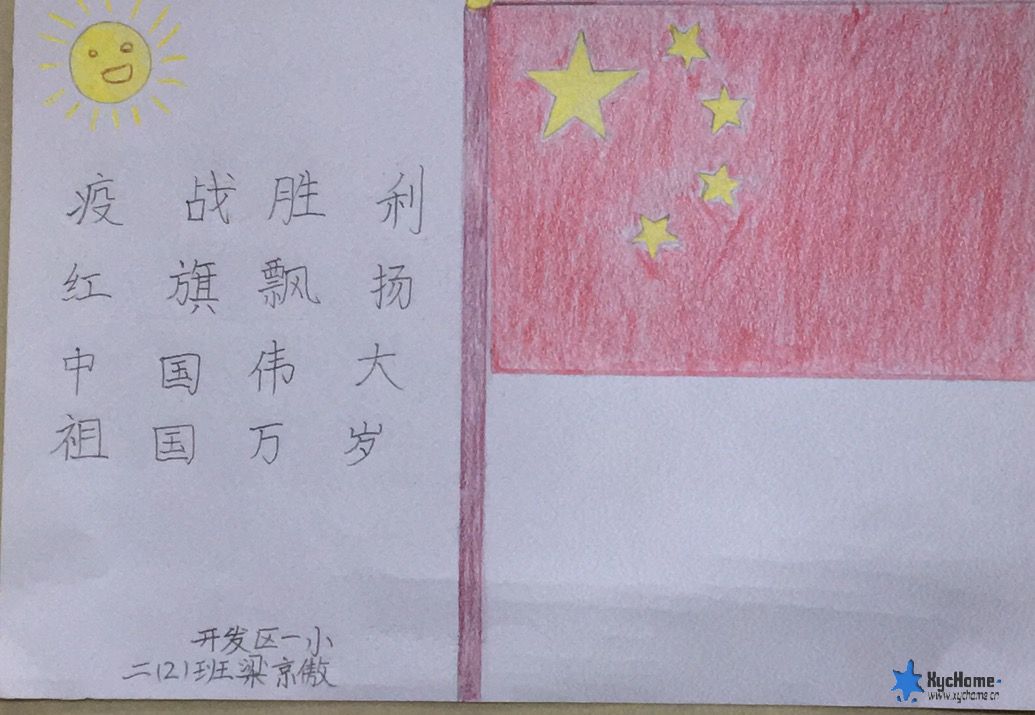 疫战胜利
红旗飘扬
中国伟大
祖国万岁
开发区一小
二(2)班梁京傲
XycHome
www.xychome.cn